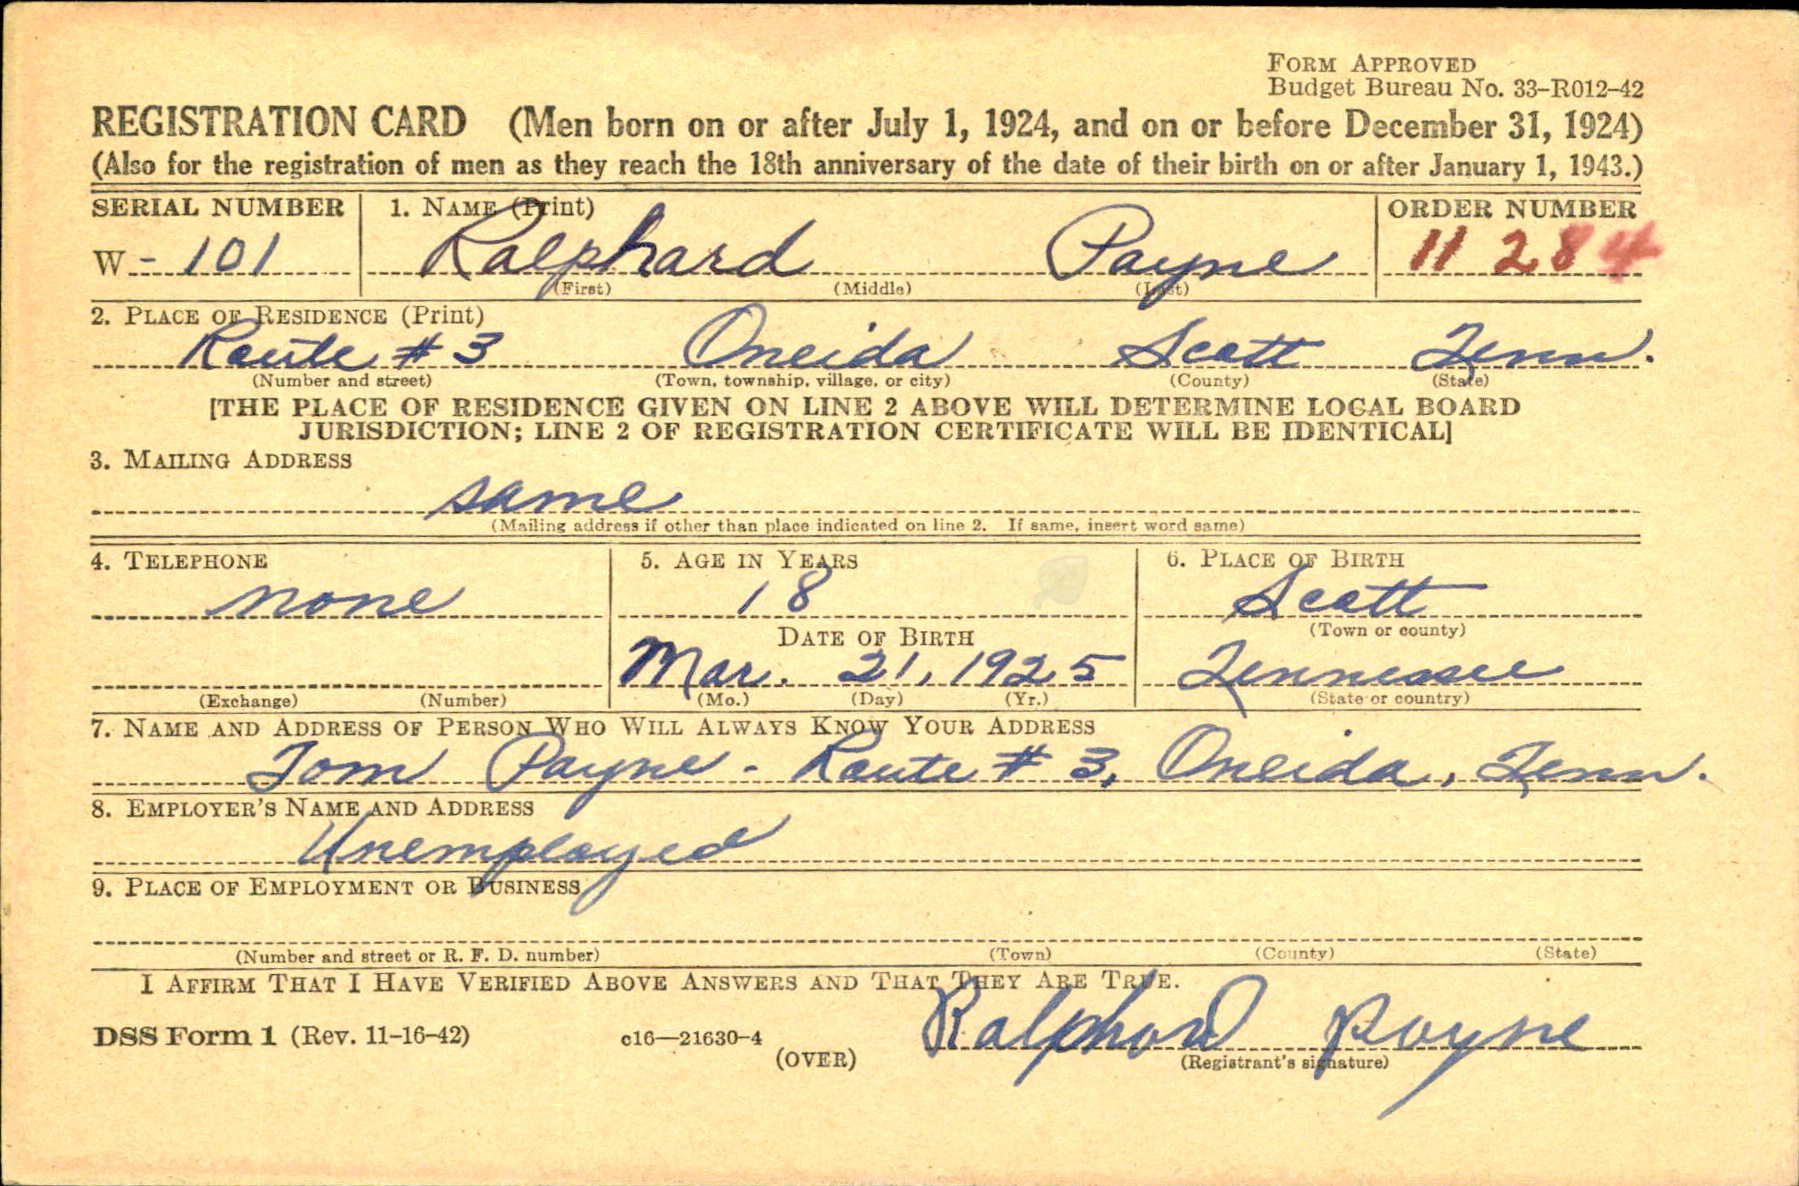 FORM APPROVED
Budget Bureau No. 33-R012-42
REGISTRATION CARD (Men born on or after July 1, 1924, and on or before December 31, 1924)
(Also for the registration of men as they reach the 18th anniversary of the date of their birth on or after January 1, 1943.)
SERIAL NUMBER 1. NAME (Print) ORDER NUMBER
W - 101 Ralphard Payne 11 284
(First) (Middle) (Last)
2. PLACE OF RESIDENCE (Print)
Route # 3 Oneida Scott Tenn.
(Number and street) (Town, township, village, or city) (County) (State)
[THE PLACE OF RESIDENCE GIVEN ON LINE 2 ABOVE WILL DETERMINE LOCAL BOARD
JURISDICTION; LINE 2 OF REGISTRATION CERTIFICATE WILL BE IDENTICAL]
3. MAILING ADDRESS
same
(Mailing address if other than place indicated on line 2. If same, insert word same)
4. TELEPHONE 5. AGE IN YEARS 6. PLACE OF BIRTH
none 18 Scott
DATE OF BIRTH (Town or county)
Mar. 21, 1925 Tennessee
(Exchange) (Number) (Mo.) (Day) (Yr.) (State or country)
7. NAME AND ADDRESS OF PERSON WHO WILL ALWAYS KNOW YOUR ADDRESS
Tom Payne - Route # 3, Oneida, Tenn.
8. EMPLOYER'S NAME AND ADDRESS
Unemployed
9. PLACE OF EMPLOYMENT OR BUSINESS
(Number and street or R. F. D. number) (Town) (County) (State)
I AFFIRM THAT I HAVE VERIFIED ABOVE ANSWERS AND THAT THEY ARE TRUE.
DSS Form 1 (Rev. 11-16-42) c16—21630-4 Ralphard Payne
(OVER) (Registrant's signature)